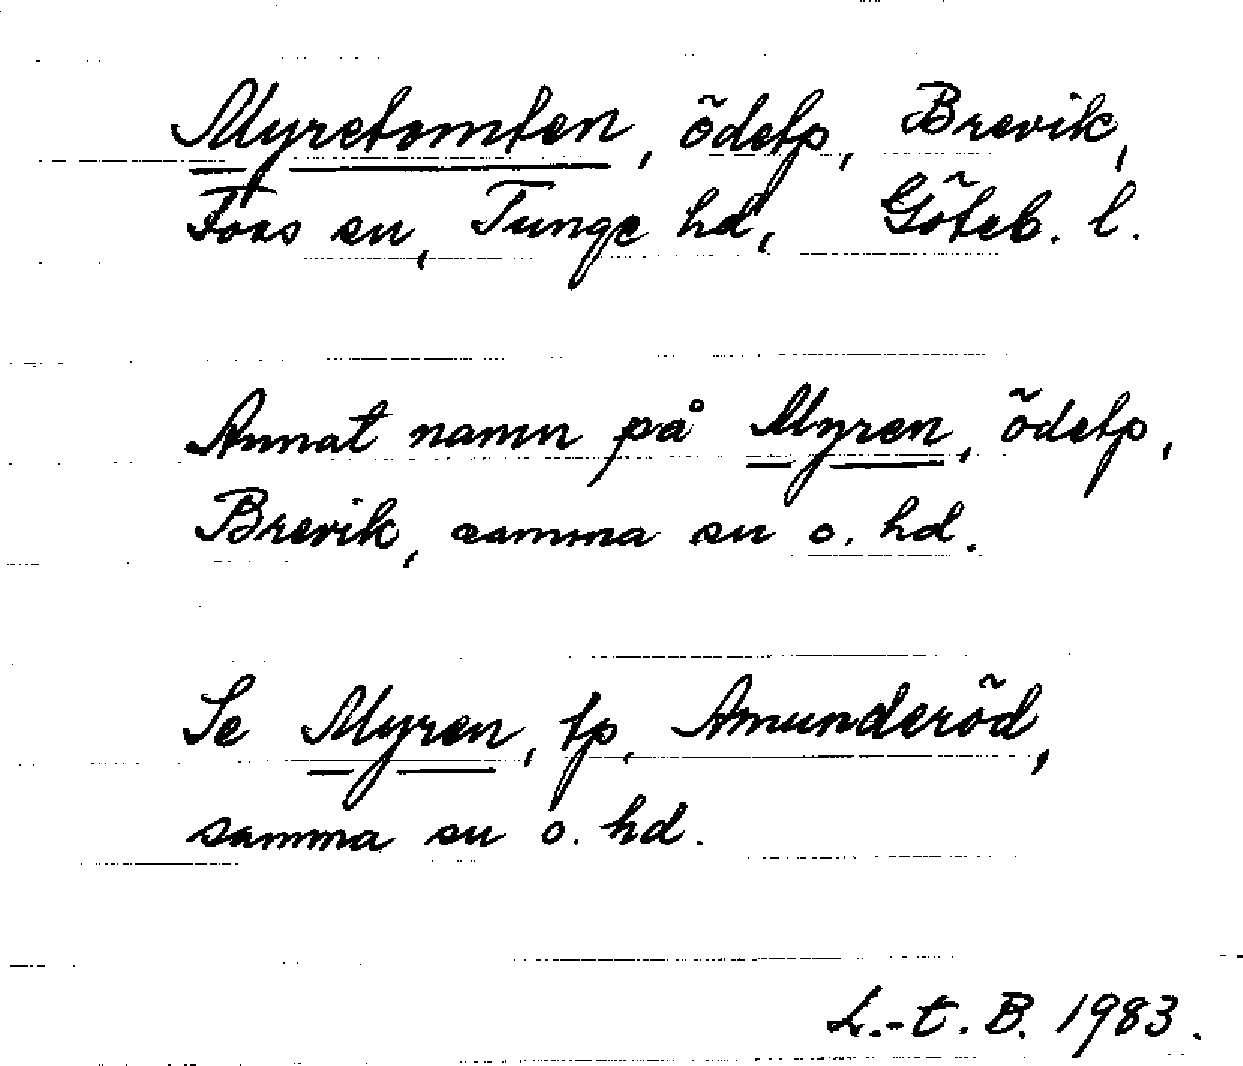 Myretomten, ödetp, Brevik,
Foss sn, Tunge hd, Göteb. l.
Annat namn på Myren, ödetp,
Brevik, samma sn o. hd.
Se Myren, tp, Amunderöd,
samma sn o. hd.
L.-t. B. 1983.